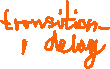 transition-
, delay